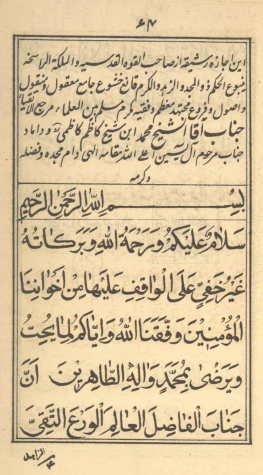 ۶۴
این اجازه رشیقه از صاحب القوه القدسیه والملکة الراسخة
ینبوع الحکم والمجد والزهد والکرم قانع خشوع جامع معقول ومنقول
واصول وفروع مجتهد معظم وفقیه مکرم سلم بین العلماء مرجع الاتقیاء
جناب اقا شیخ محمد ابن شیخ کاظم کاظمی وداماد
جناب مرحوم آل یسین اعلی الله مقامه الهی دام مجده وفضله
وکرمه
بِسْمِ اللهِ الرَّحْمٰنِ الرَّحِيْمِ
سَلَامٌ عَلَيْكُمْ وَرَحْمَةُ اللهِ وَبَرَكَاتُهُ
غَيْرُ خَفِيٍّ عَلَى الْوَاقِفِ عَلَيْهَا مِنْ اِخْوَانِنَا
الْمُؤْمِنِيْنَ وَفَّقَنَا اللهُ وَاِيَّاكُمْ لِمَا يُحِبُّ
وَيَرْضٰى بِمُحَمَّدٍ وَاٰلِهِ الطَّاهِرِيْنَ اَنَّ
جَنَابَ الْفَاضِلَ الْعَالِمَ الْوَرَعَ التَّقِيَّ